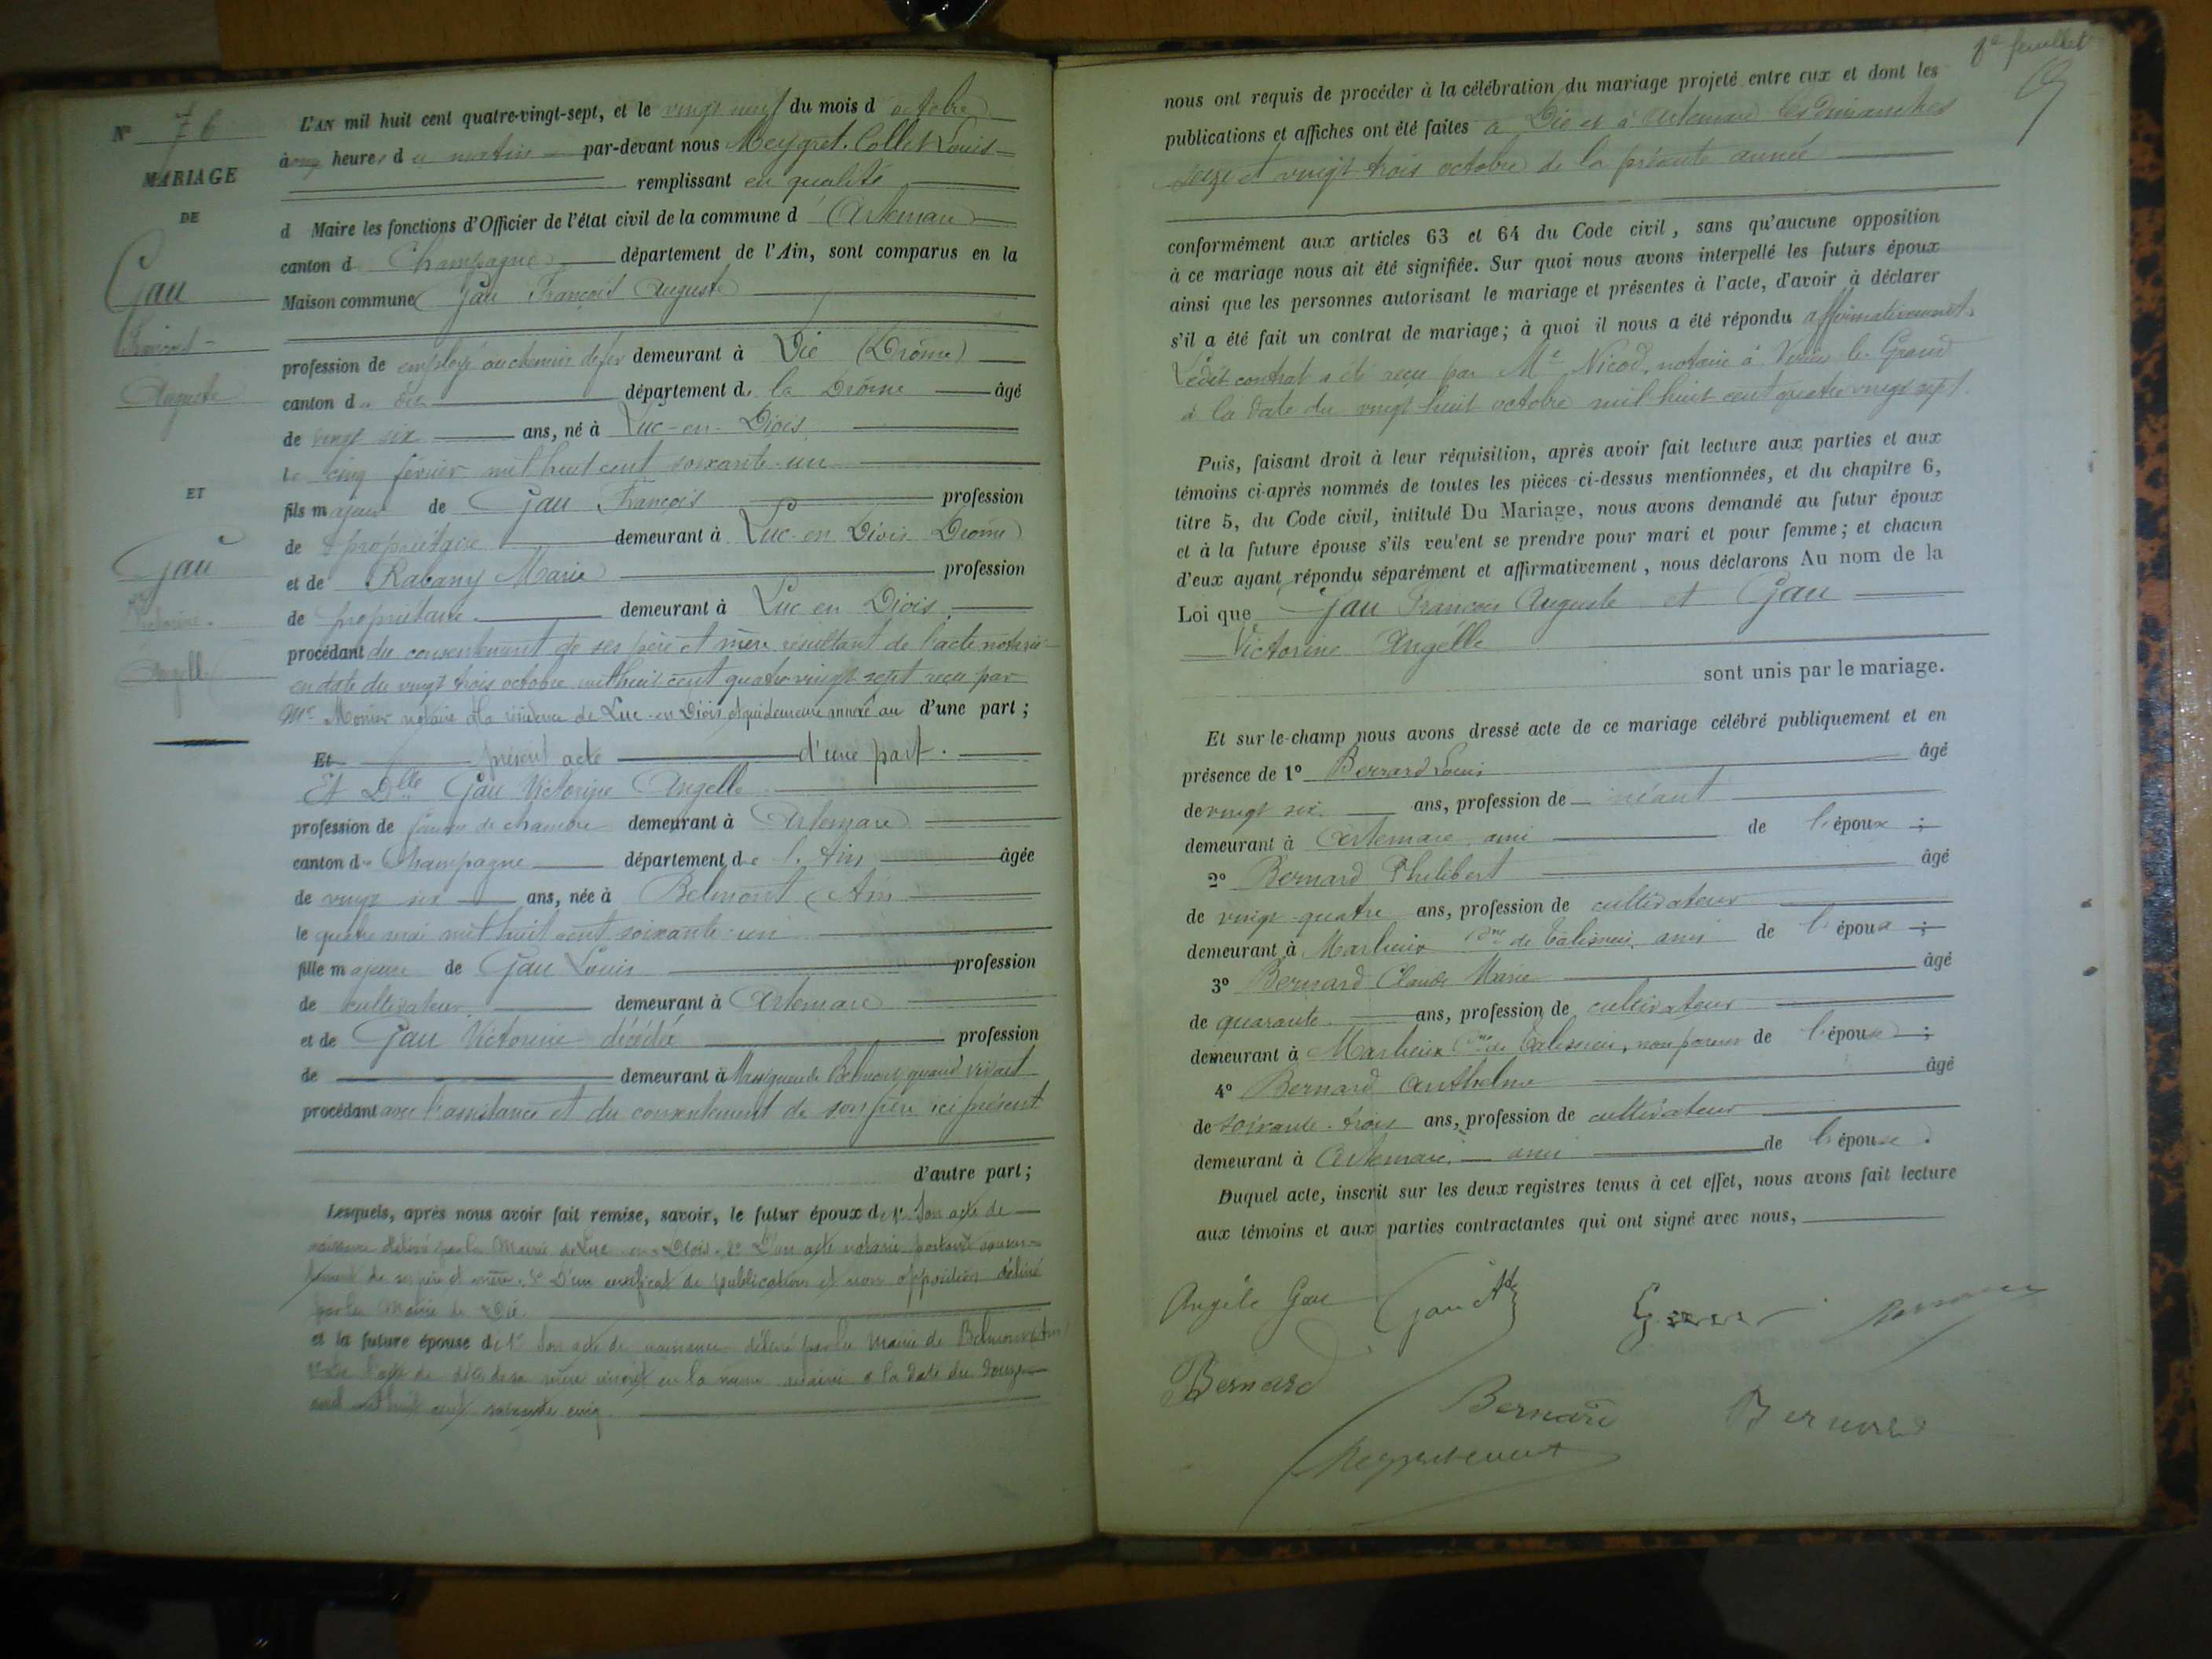 N° 76
MARIAGE
DE
Gau
François
Auguste
ET
Gau
Victorine
Angelle
L'AN mil huit cent quatre-vingt-sept, et le vingt neuf du mois d octobre
à onze heures du matin par-devant nous Meygret-Collet Louis
remplissant en qualité
d Maire les fonctions d'Officier de l'état civil de la commune d Artemare
canton d Champagne département de l'Ain, sont comparus en la
Maison commune Gau François Auguste
profession de employé au chemin de fer demeurant à Die (Drôme)
canton de Die département de la Drôme âgé
de vingt six ans, né à Luc-en-Diois
le cinq février mil huit cent soixante-un
fils majeur de Gau François profession
de propriétaire demeurant à Luc-en Diois Drôme
et de Rabany Marie profession
de propriétaire demeurant à Luc en Diois
procédant du consentement de ses père et mère résultant de l'acte notarié
en date du vingt trois octobre mil huit cent quatre vingt sept reçu par
Me Monier notaire à la résidence de Luc-en Diois et qui demeure annexé au d'une part ;
Et présent acte d'une part.
Et Dlle Gau Victorine Angelle
profession de femme de chambre demeurant à Artemare
canton de Champagne département de l'Ain âgée
de vingt six ans, née à Belmont (Ain)
le quatre mai mil huit cent soixante-un
fille majeure de Gau Louis profession
de cultivateur demeurant à Artemare
et de Gau Victorine décédée profession
de demeurant à Massignieu de Belmont quand vivait
procédant avec l'assistance et du consentement de son père ici présent
d'autre part ;
Lesquels, après nous avoir fait remise, savoir, le futur époux de 1° Son acte de
naissance délivré par la Mairie de Luc-en-Diois. 2° D'un acte notarié portant consen-
tement de ses père et mère. 3° D'un certificat de publication et non opposition délivré
par la Mairie de Die.
et la future épouse de 1° Son acte de naissance délivré par la Mairie de Belmont (Ain)
2° de l'acte de décès de sa mère inscrit en la même mairie à la date du douze
mil huit cent soixante cinq
feuillet
nous ont requis de procéder à la célébration du mariage projeté entre eux et dont les
publications et affiches ont été faites à Die et à Artemare les dimanches
seize et vingt trois octobre de la présente année
conformément aux articles 63 et 64 du Code civil, sans qu'aucune opposition
à ce mariage nous ait été signifiée. Sur quoi nous avons interpellé les futurs époux
ainsi que les personnes autorisant le mariage et présentes à l'acte, d'avoir à déclarer
s'il a été fait un contrat de mariage ; à quoi il nous a été répondu affirmativement.
Ledit contrat a été reçu par Me Nicod, notaire à Virieu le Grand
à la date du vingt huit octobre mil huit cent quatre vingt sept.
Puis, faisant droit à leur réquisition, après avoir fait lecture aux parties et aux
témoins ci-après nommés de toutes les pièces ci-dessus mentionnées, et du chapitre 6,
titre 5, du Code civil, intitulé Du Mariage, nous avons demandé au futur époux
et à la future épouse s'ils veulent se prendre pour mari et pour femme ; et chacun
d'eux ayant répondu séparément et affirmativement, nous déclarons Au nom de la
Loi que Gau François Auguste et Gau
Victorine Angelle
sont unis par le mariage.
Et sur-le-champ nous avons dressé acte de ce mariage célébré publiquement et en
présence de 1° Bernard Louis âgé
de vingt six ans, profession de néant
demeurant à Artemare, ami de l'époux ;
2° Bernard Philibert âgé
de vingt-quatre ans, profession de cultivateur
demeurant à Marlieux de Talissieu, ami de l'époux ;
3° Bernard Claude Marie âgé
de quarante ans, profession de cultivateur
demeurant à Marlieux de Talissieu, non parent de l'épouse ;
4° Bernard Anthelme âgé
de soixante-trois ans, profession de cultivateur
demeurant à Artemare, ami de l'épouse.
Duquel acte, inscrit sur les deux registres tenus à cet effet, nous avons fait lecture
aux témoins et aux parties contractantes qui ont signé avec nous,
Angèle Gau Gau Ate
Bernard Bernard Bernard